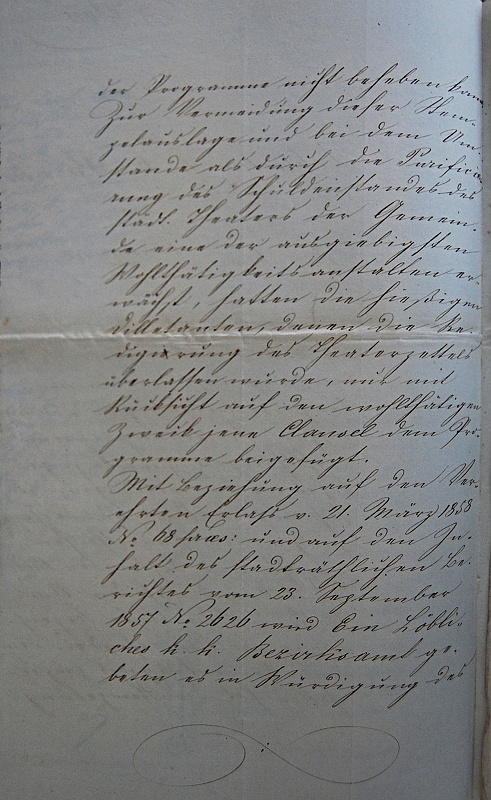 der Programme nicht beheben kann
Zur Vermeidung dieser Stem-
pelauslage und bei dem Um-
stande als durch die Purifici-
rung des Schuldenstandes des
städt. Theaters der Gemein-
de eine der ausgiebigsten
Wohlthätigkeitsanstalten er-
wächst, hatten die hießigen
Dilletanten, denen die Re-
digirung des Theaterzettels
überlassen wurde, nur mit
Rücksicht auf den wohlthätigen
Zweck jene Clausel dem Pro-
gramme beigefügt.
Mit Beziehung auf den Ver-
ehrten Erlaß v. 21. März 1858
No 68 und auf den In-
halt des stadträthlichen Be-
richtes vom 23. September
1857 No 2626 wird Ein Löbli-
ches k. k. Bezirksamt ge-
beten es in Würdigung des